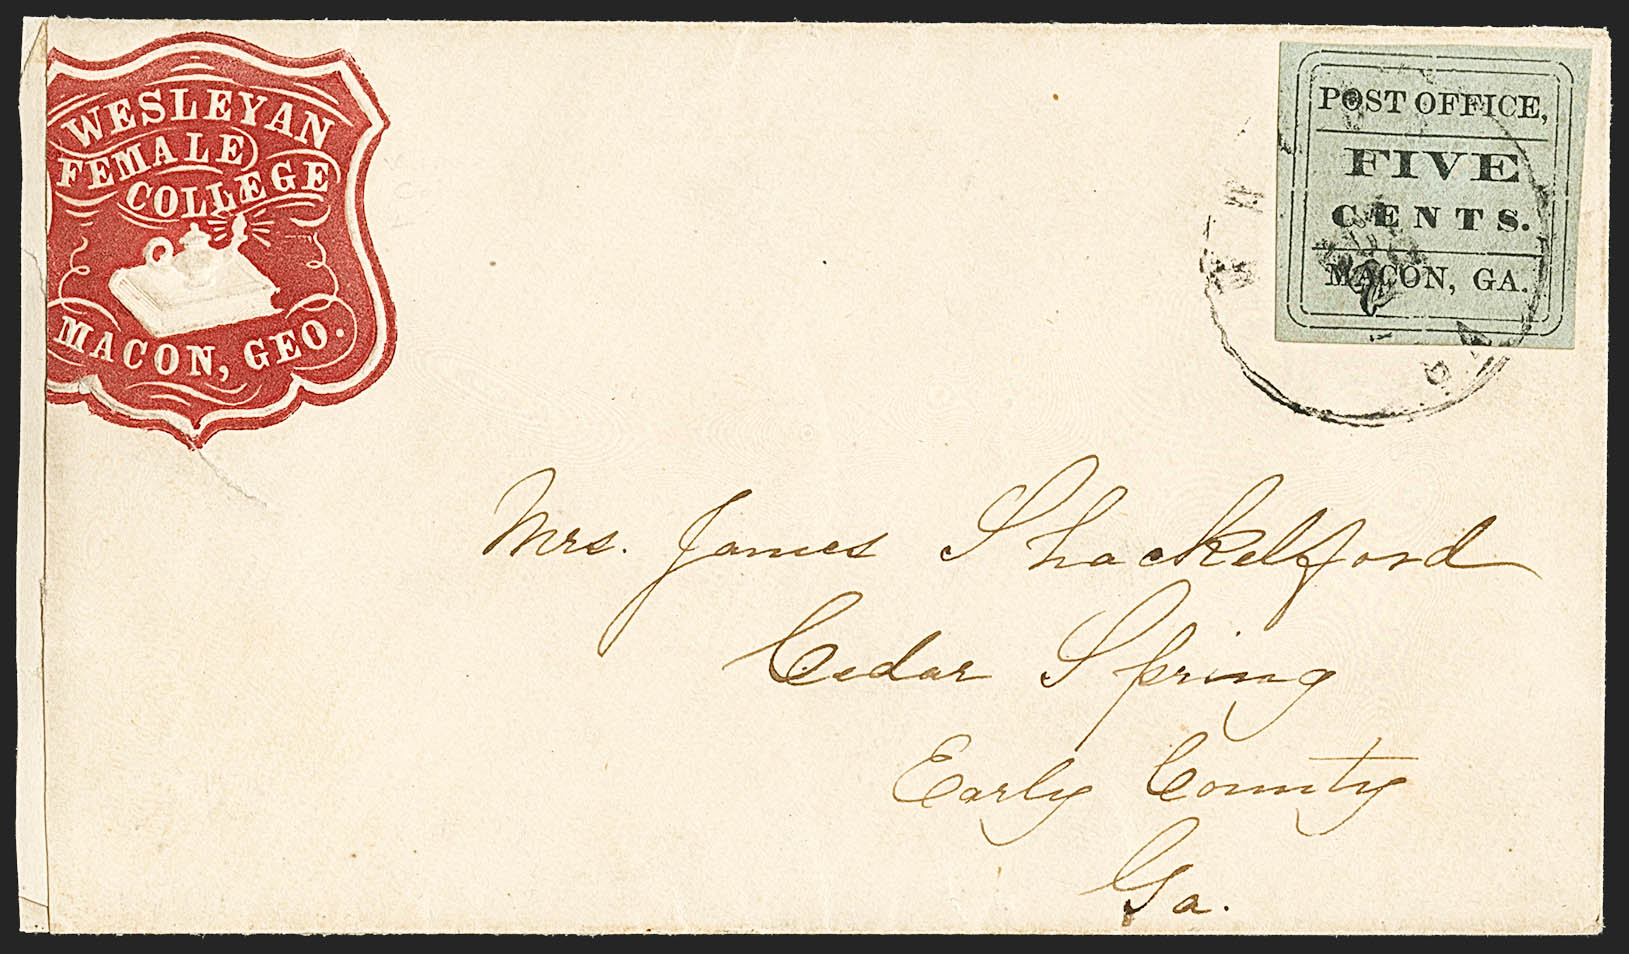 WESLEYAN
FEMALE
COLLEGE
MACON, GEO.
POST OFFICE,
FIVE
CENTS.
MACON, GA.
Mrs. James Shackelford
Cedar Spring
Early County
Ga.